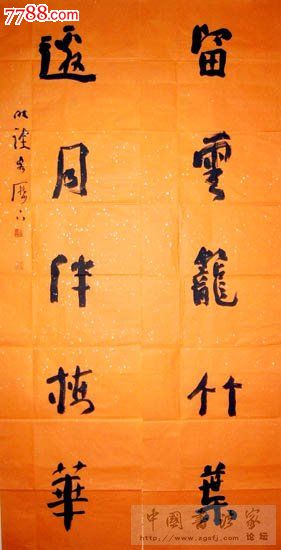 7788.com
留雲籠竹葉
邀月伴梅華
中國書法家
论坛